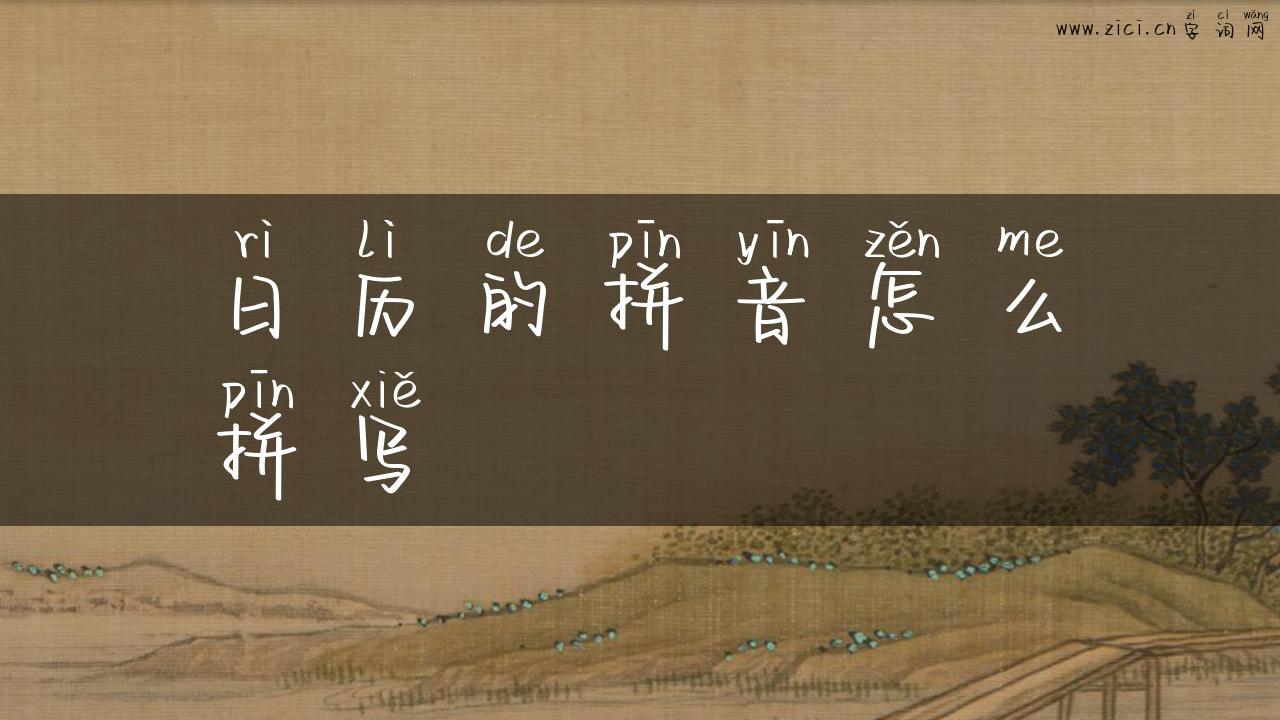 zì cí wǎng
www.zici.cn字词网
rì lì de pīn yīn zěn me
日历的拼音怎么
pīn xiě
拼写